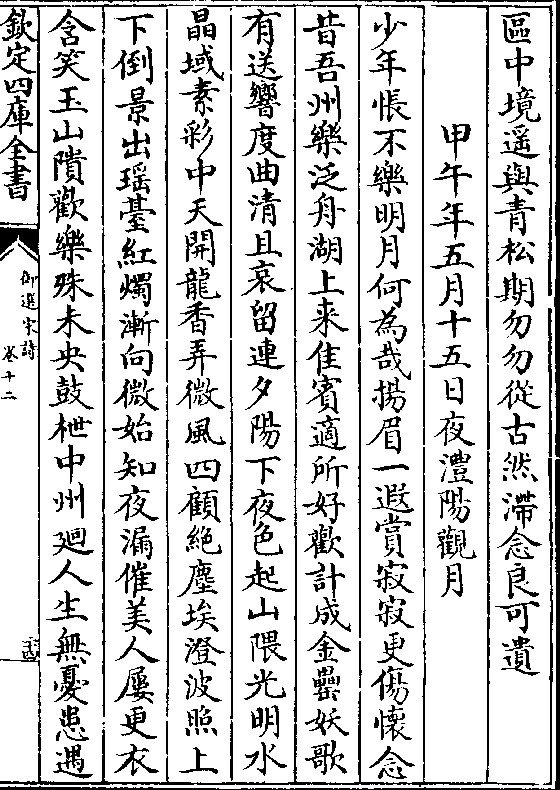 區中境遥與青松期勿勿從古然滯念良可遺
甲午年五月十五日夜澧陽觀月
少年悵不樂明月何為哉揚眉一遐賞寂寂更傷懷念
昔吾州樂泛舟湖上來佳賓適所好歡計成金罍妖歌
有送響度曲清且哀留連夕陽下夜色起山隈光明水
晶域素彩中天開龍香弄微風四顧絶塵埃澄波照上
下倒景出瑶臺紅燭漸向微始知夜漏催美人屢更衣
含笑玉山隤歡樂殊未央鼓枻中州廻人生無憂患遇
欽定四庫全書
御選宋詩
卷十二